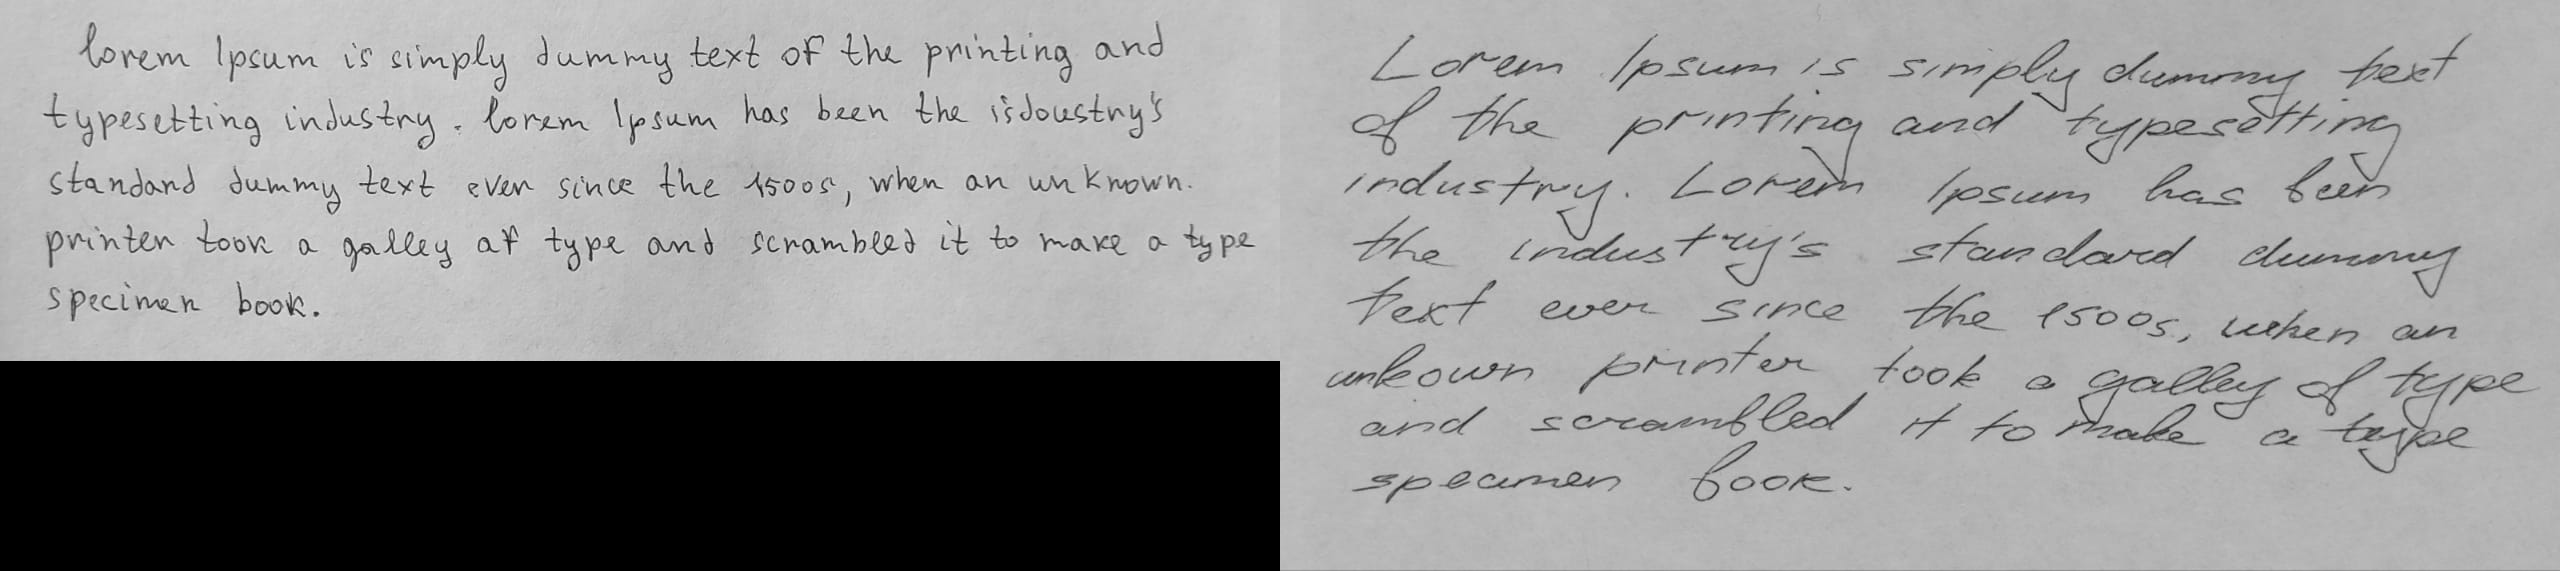 lorem Ipsum is simply dummy text of the printing and
typesetting industry. lorem Ipsum has been the isdoustry's
standard dummy text ever since the 1500s, when an unknown.
printer took a galley af type and scrambled it to make a type
specimen book.
Lorem Ipsum is simply dummy text
of the printing and typesetting
industry. Lorem Ipsum has been
the industry's standard dummy
text ever since the 1500s, when an
unkown printer took a galley of type
and scrambled it to make a type
specimen book.